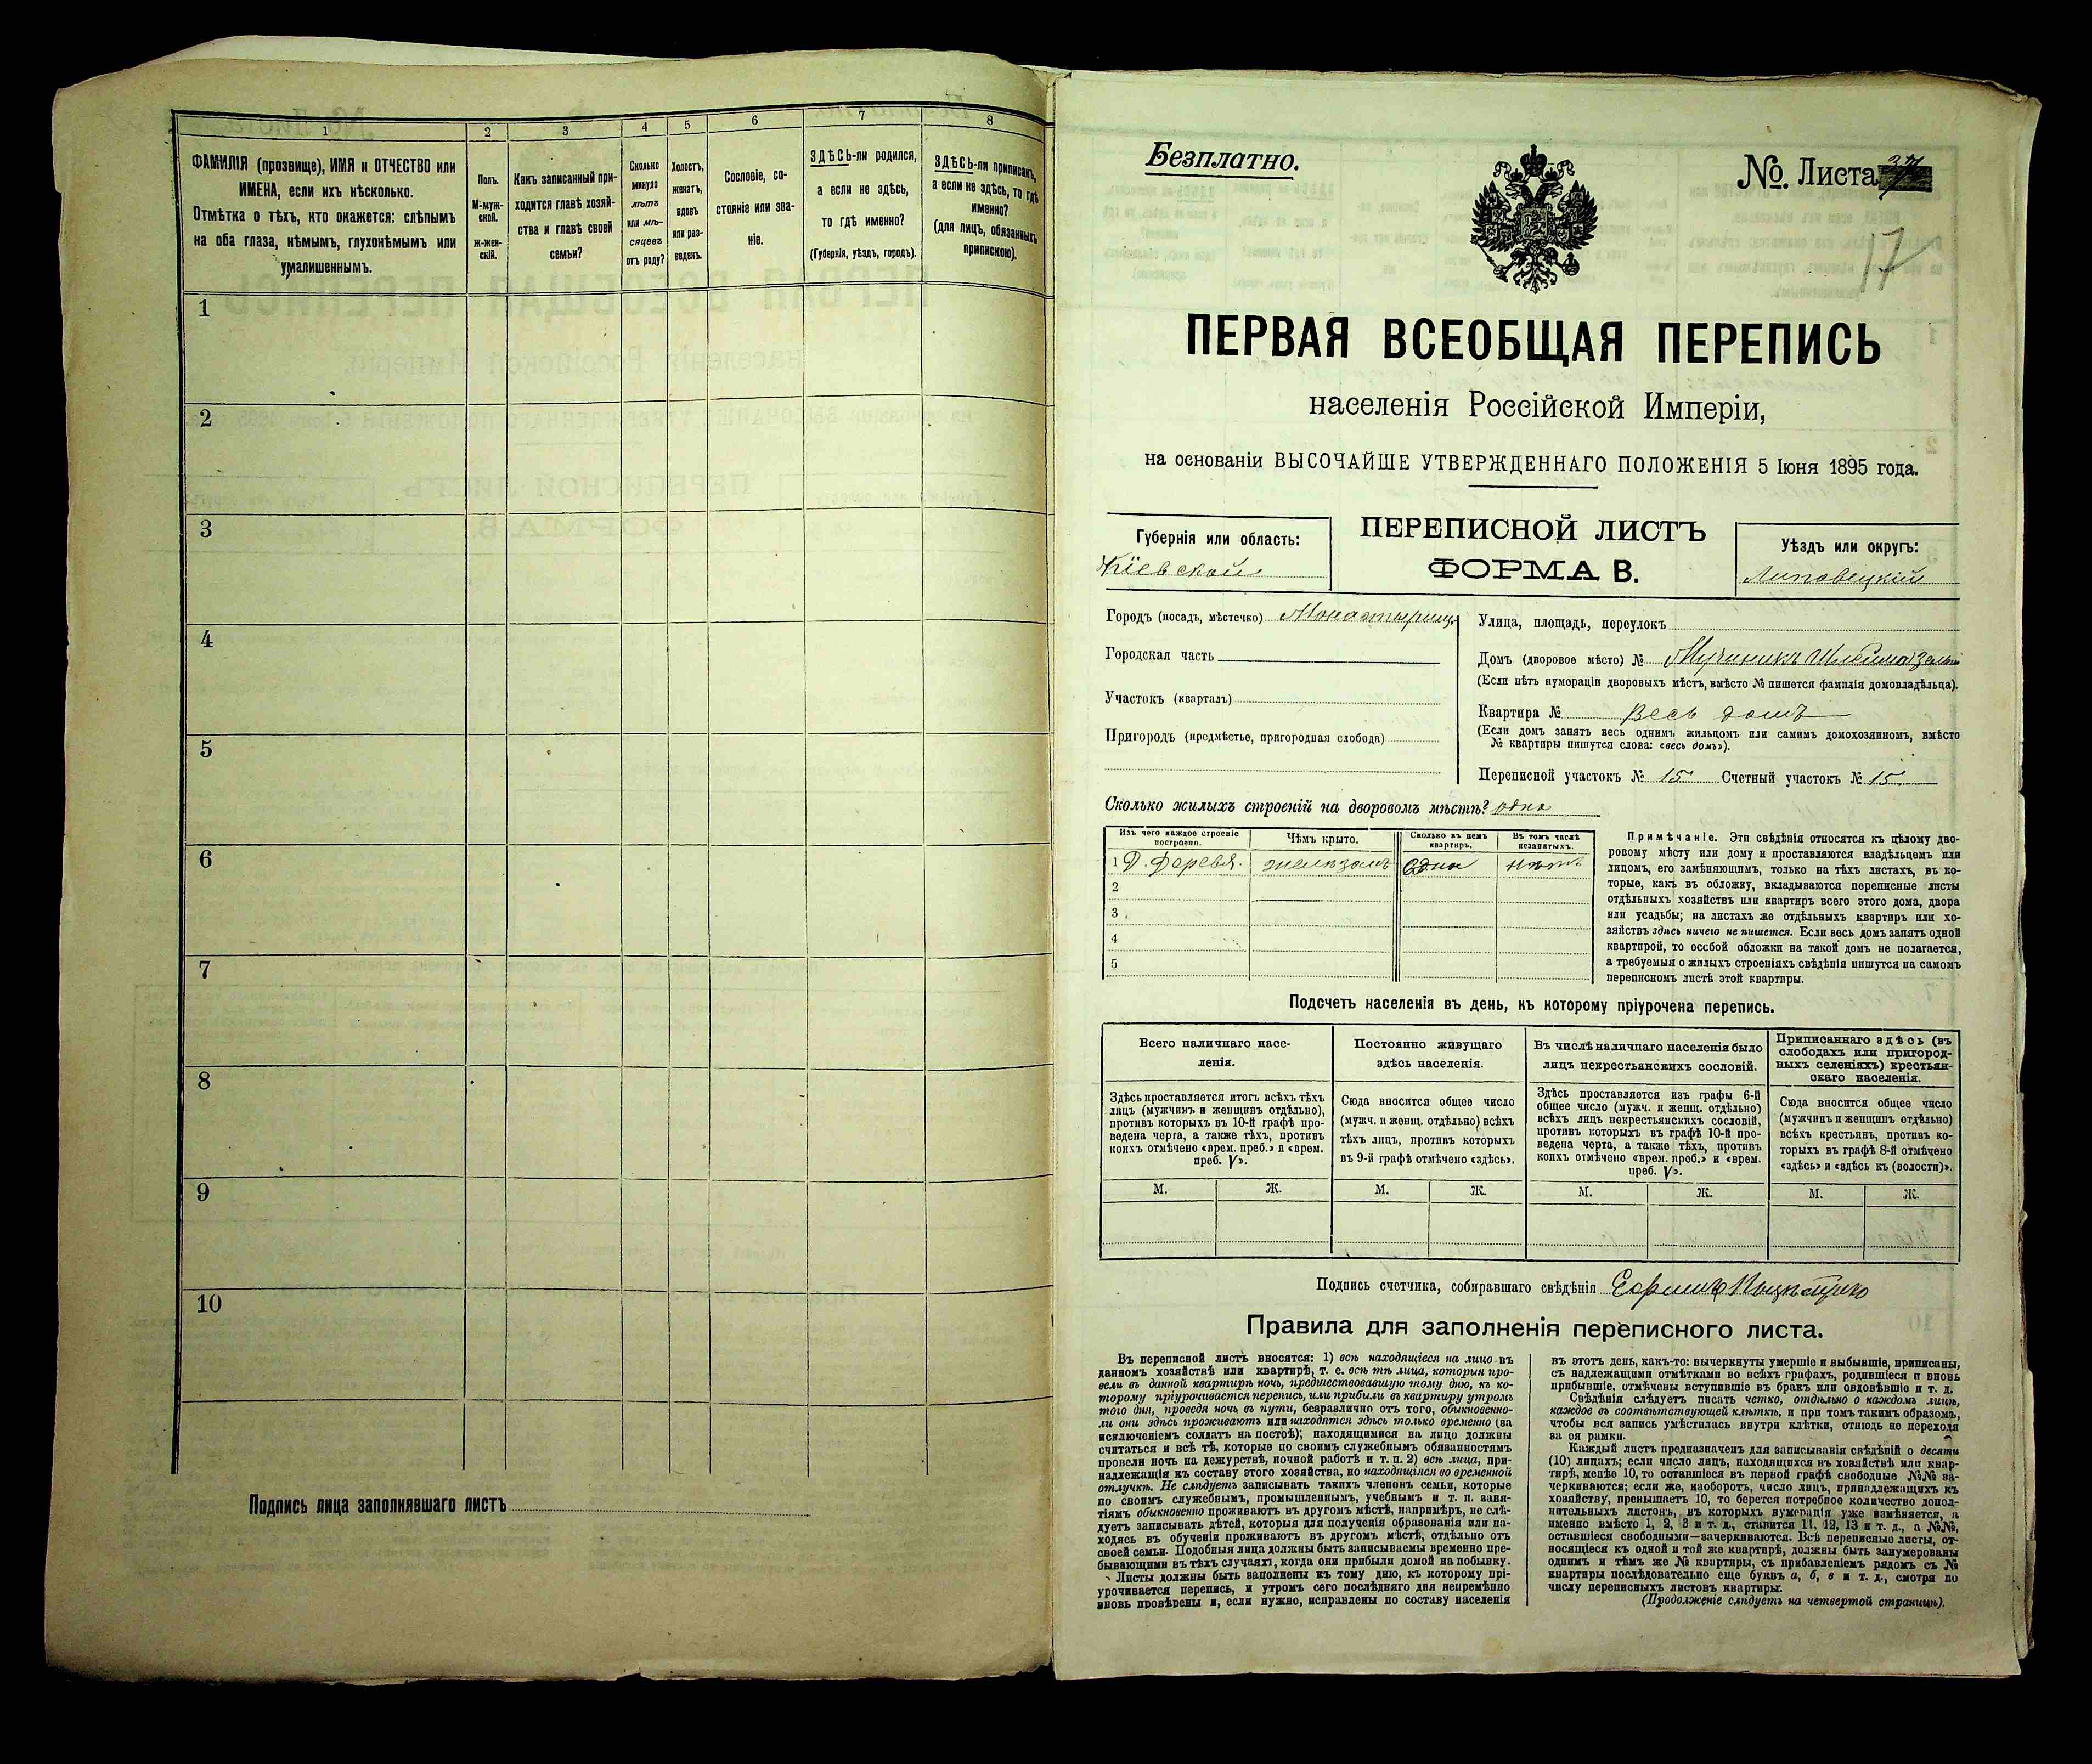 1
2
3
4
5
6
7
8
ФАМИЛІЯ (прозвище), ИМЯ и ОТЧЕСТВО или
ИМЕНА, если ихъ нѣсколько.
Отмѣтка о тѣхъ, кто окажется: слѣпымъ
на оба глаза, нѣмымъ, глухонѣмымъ или
умалишеннымъ.
Полъ.
М-муж-
ской.
Ж-жен-
скій.
Какъ записанный при-
ходится главѣ хозяй-
ства и главѣ своей
семьи?
Сколько
минуло
лѣтъ
или мѣ-
сяцевъ
отъ роду?
Холостъ,
женатъ,
вдовъ
или раз-
веденъ.
Сословіе, со-
стояніе или зва-
ніе.
ЗДѢСЬ-ли родился,
а если не здѣсь,
то гдѣ именно?
(Губернія, уѣздъ, городъ).
ЗДѢСЬ-ли приписанъ,
а если не здѣсь, то гдѣ
именно?
(для лицъ, обязанныхъ
припискою).
1
2
3
4
5
6
7
8
9
10
Подпись лица заполнявшаго листъ
Безплатно.
№. Листа
17
ПЕРВАЯ ВСЕОБЩАЯ ПЕРЕПИСЬ
населенія Россійской Имперіи,
на основаніи ВЫСОЧАЙШЕ УТВЕРЖДЕННАГО ПОЛОЖЕНІЯ 5 Іюня 1895 года.
Губернія или область:
Кіевской
ПЕРЕПИСНОЙ ЛИСТЪ
ФОРМА В.
Уѣздъ или округъ:
Липовецкій
Городъ (посадъ, мѣстечко) Монастырищ
Городская часть
Участокъ (кварталъ)
Пригородъ (предмѣстье, пригородная слобода)
Улица, площадь, переулокъ
Домъ (дворовое мѣсто) № Мучникъ Шлейма
(Если нѣтъ нумераціи дворовыхъ мѣстъ, вмѣсто № пишется фамилія домовладѣльца).
Квартира № Весь домъ
(Если домъ занятъ весь однимъ жильцомъ или самимъ домохозяиномъ, вмѣсто
№ квартиры пишутся слова: «весь домъ»).
Переписной участокъ № 15 Счетный участокъ № 15
Сколько жилыхъ строеній на дворовомъ мѣстѣ? одна
Изъ чего каждое строеніе
построено.
Чѣмъ крыто.
Сколько въ немъ
квартиръ.
Въ томъ числѣ
незанятыхъ.
1 Д. деревя. желѣзомъ Одна нѣтъ
2
3
4
5
Примѣчаніе. Эти свѣдѣнія относятся къ цѣлому дво-
ровому мѣсту или дому и проставляются владѣльцемъ или
лицомъ, его замѣняющимъ, только на тѣхъ листахъ, въ ко-
торые, какъ въ обложку, вкладываются переписные листы
отдѣльныхъ хозяйствъ или квартиръ всего этого дома, двора
или усадьбы; на листахъ же отдѣльныхъ квартиръ или хо-
зяйствъ здѣсь ничего не пишется. Если весь домъ занятъ одной
квартирой, то особой обложки на такой домъ не полагается,
а требуемыя о жилыхъ строеніяхъ свѣдѣнія пишутся на самомъ
переписномъ листѣ этой квартиры.
Подсчетъ населенія въ день, къ которому пріурочена перепись.
Всего наличнаго насе-
ленія.
Здѣсь проставляется итогъ всѣхъ тѣхъ
лицъ (мужчинъ и женщинъ отдѣльно),
противъ которыхъ въ 10-й графѣ про-
ведена черта, а также тѣхъ, противъ
коихъ отмѣчено «врем. преб.» и «врем.
преб. V».
Постоянно живущаго
здѣсь населенія.
Сюда вносится общее число
(мужч. и женщ. отдѣльно) всѣхъ
тѣхъ лицъ, противъ которыхъ
въ 9-й графѣ отмѣчено «здѣсь».
Въ числѣ наличнаго населенія было
лицъ некрестьянскихъ сословій.
Здѣсь проставляется изъ графы 6-й
общее число (мужч. и женщ. отдѣльно)
всѣхъ лицъ некрестьянскихъ сословій,
противъ которыхъ въ графѣ 10-й про-
ведена черта, а также тѣхъ, противъ
коихъ отмѣчено «врем. преб.» и «врем.
преб. V».
Приписаннаго здѣсь (въ
слободахъ или пригород-
ныхъ селеніяхъ) крестьян-
скаго населенія.
Сюда вносится общее число
(мужчинъ и женщинъ отдѣльно)
всѣхъ крестьянъ, противъ ко-
торыхъ въ графѣ 8-й отмѣчено
«здѣсь» и «здѣсь къ (волости)».
М. Ж. М. Ж. М. Ж. М. Ж.
Подпись счетчика, собиравшаго свѣдѣнія
Правила для заполненія переписного листа.
Въ переписной листъ вносятся: 1) всѣ находящіеся на лицо въ
данномъ хозяйствѣ или квартирѣ, т. е. всѣ тѣ лица, которыя про-
вели въ данной квартирѣ ночь, предшествовавшую тому дню, къ ко-
торому пріурочивается перепись, или прибыли въ квартиру утромъ
того дня, проведя ночь въ пути, безразлично отъ того, обыкновенно-
ли они здѣсь проживаютъ или находятся здѣсь только временно (за
исключеніемъ солдатъ на постоѣ); находящимися на лицо должны
считаться и всѣ тѣ, которые по своимъ служебнымъ обязанностямъ
провели ночь на дежурствѣ, ночной работѣ и т. п. 2) всѣ лица, при-
надлежащія къ составу этого хозяйства, но находящіяся во временной
отлучкѣ. Не слѣдуетъ записывать такихъ членовъ семьи, которые
по своимъ служебнымъ, промышленнымъ, учебнымъ и т. п. заня-
тіямъ обыкновенно проживаютъ въ другомъ мѣстѣ, напримѣръ, не слѣ-
дуетъ записывать дѣтей, которыя для полученія образованія или на-
ходясь въ обученіи проживаютъ въ другомъ мѣстѣ, отдѣльно отъ
своей семьи. Подобныя лица должны быть записываемы временно пре-
бывающими въ тѣхъ случаяхъ, когда они прибыли домой на побывку.
Листы должны быть заполнены къ тому дню, къ которому прі-
урочивается перепись, и утромъ сего послѣдняго дня непремѣнно
вновь провѣрены и, если нужно, исправлены по составу населенія
въ этотъ день, какъ-то: вычеркнуты умершіе и выбывшіе, приписаны,
съ надлежащими отмѣтками во всѣхъ графахъ, родившіеся и вновь
прибывшіе, отмѣчены вступившіе въ бракъ или овдовѣвшіе и т. д.
Свѣдѣнія слѣдуетъ писать четко, отдѣльно о каждомъ лицѣ,
каждое въ соотвѣтствующей клѣткѣ, и при томъ такимъ образомъ,
чтобы вся запись умѣстилась внутри клѣтки, отнюдь не переходя
за ея рамки.
Каждый листъ предназначенъ для записыванія свѣдѣній о десяти
(10) лицахъ; если число лицъ, находящихся въ хозяйствѣ или квар-
тирѣ, менѣе 10, то оставшіеся въ первой графѣ свободные №№ за-
черкиваются; если же, наоборотъ, число лицъ, принадлежащихъ къ
хозяйству, превышаетъ 10, то берется потребное количество допол-
нительныхъ листовъ, въ которыхъ нумерація уже измѣняется, а
именно вмѣсто 1, 2, 3 и т. д., ставится 11, 12, 13 и т. д., а №№,
оставшіеся свободными—зачеркиваются. Всѣ переписные листы, от-
носящіеся къ одной и той же квартирѣ, должны быть занумерованы
однимъ и тѣмъ же № квартиры, съ прибавленіемъ рядомъ съ №
квартиры послѣдовательно еще буквъ а, б, в и т. д., смотря по
числу переписныхъ листовъ квартиры.
(Продолженіе слѣдуетъ на четвертой страницѣ).